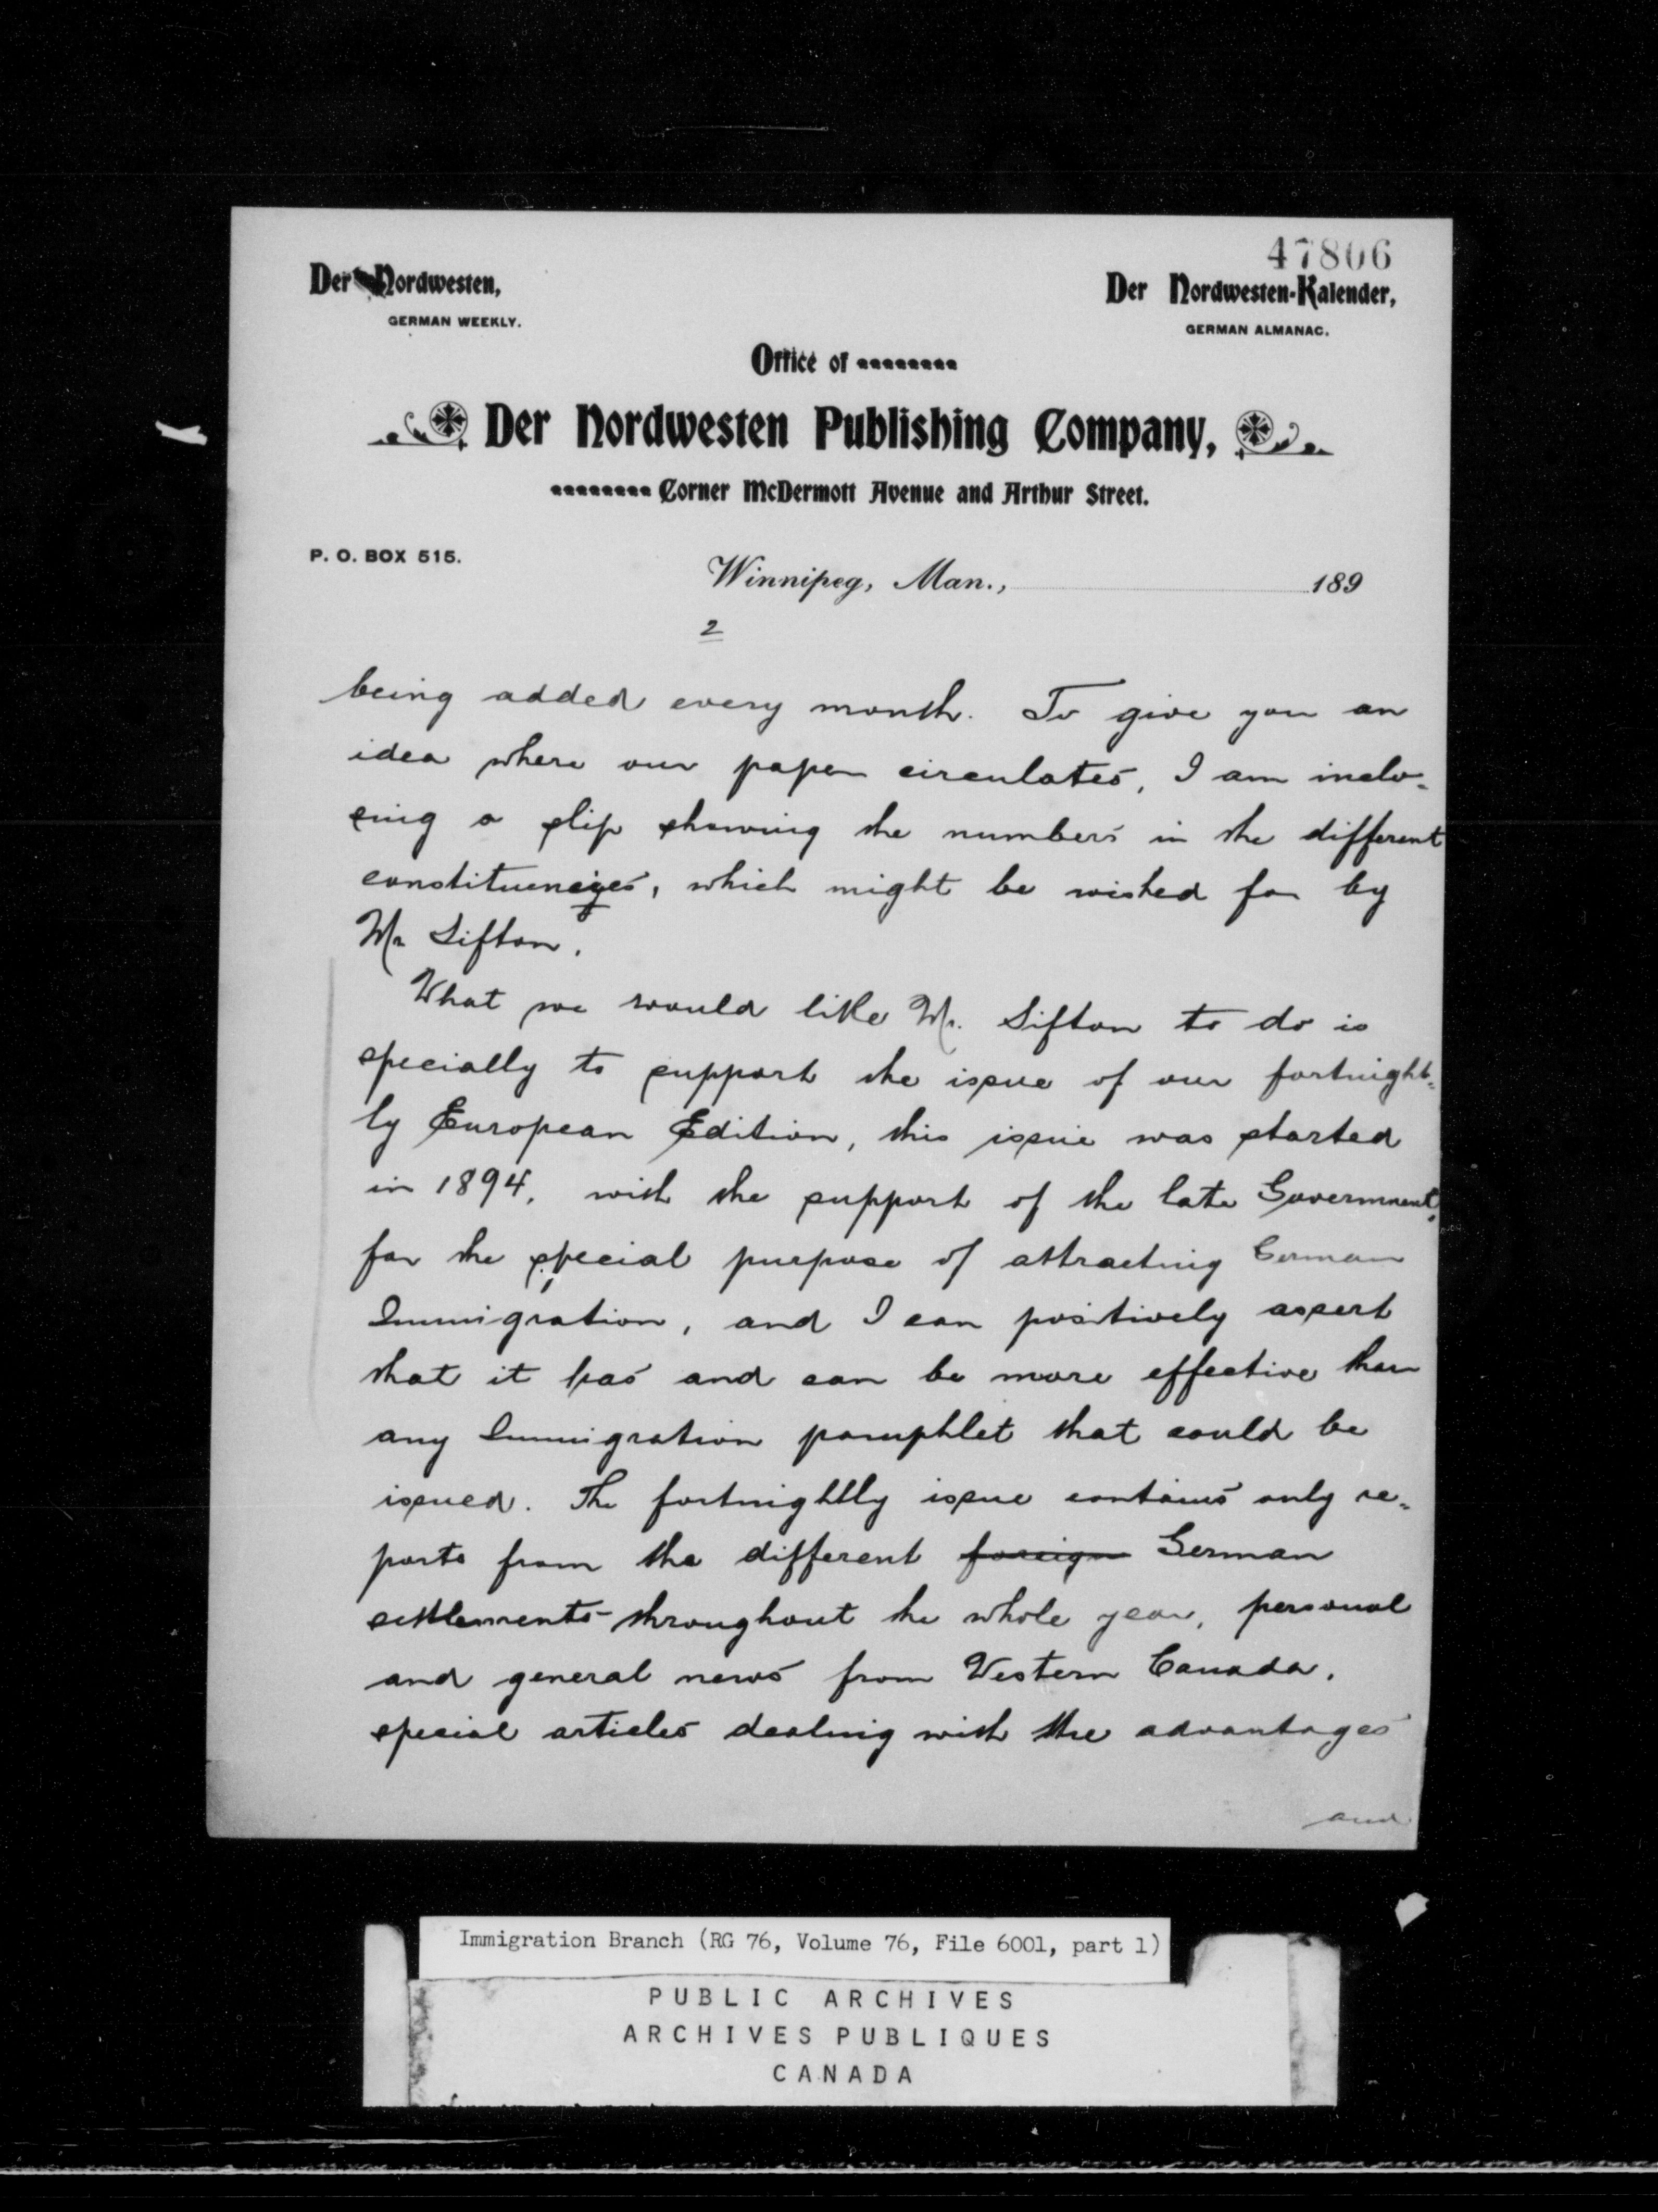 47806
Der Nordwesten,
GERMAN WEEKLY.
Der Nordwesten-Kalender,
GERMAN ALMANAC.
Office of
Der Nordwesten Publishing Company,
Corner McDermott Avenue and Arthur Street.
P. O. BOX 515.
Winnipeg, Man., 189
2
being added every month. To give you an
idea where our paper circulates, I am inclo=
sing a slip showing the numbers in the different
constituencyes, which might be wished for by
Mr Sifton.
What we would like Mr. Sifton to do is
specially to support the issue of our fortnight=
ly European Edition, this issue was started
in 1894, with the support of the late Government,
for the special purpose of attracting German
Immigration, and I can positively assert
that it has and can be more effective than
any Immigration pamphlet that could be
issued. The fortnightlly issue contains only re=
ports from the different foreign German
settlements throughout the whole year, personal
and general news from Western Canada,
special articles dealing with the advantages
and
Immigration Branch (RG 76, Volume 76, File 6001, part 1)
PUBLIC ARCHIVES
ARCHIVES PUBLIQUES
CANADA